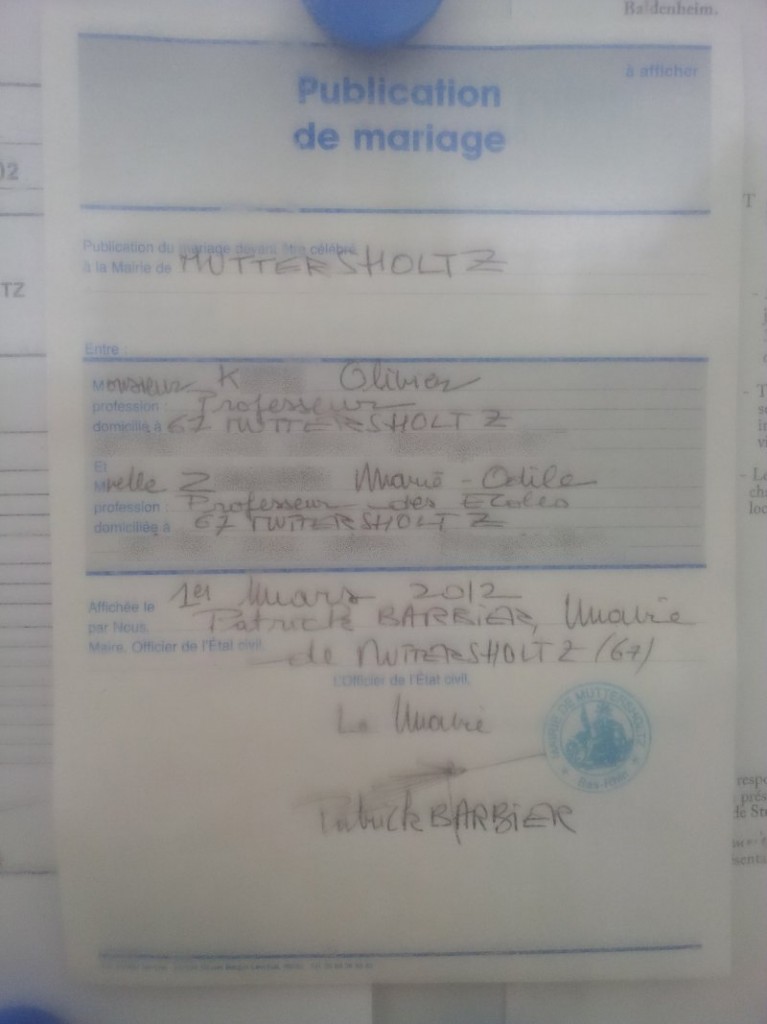 Baldenheim.
à afficher
Publication
de mariage
Publication du mariage devant être célébré
à la Mairie de MUTTERSHOLTZ
Entre :
Monsieur K Olivier
profession : Professeur
domicilié à 67 MUTTERSHOLTZ
Et
Melle Z Marie-Odile
profession : Professeur des Ecoles
domiciliée à 67 MUTTERSHOLTZ
Affichée le 1er Mars 2012
par Nous, Patrick BARBIER, Maire
Maire, Officier de l'État civil, de MUTTERSHOLTZ (67)
L'Officier de l'État civil,
Le Maire
MAIRIE DE MUTTERSHOLTZ
Bas-Rhin
Patrick BARBIER
02
TZ